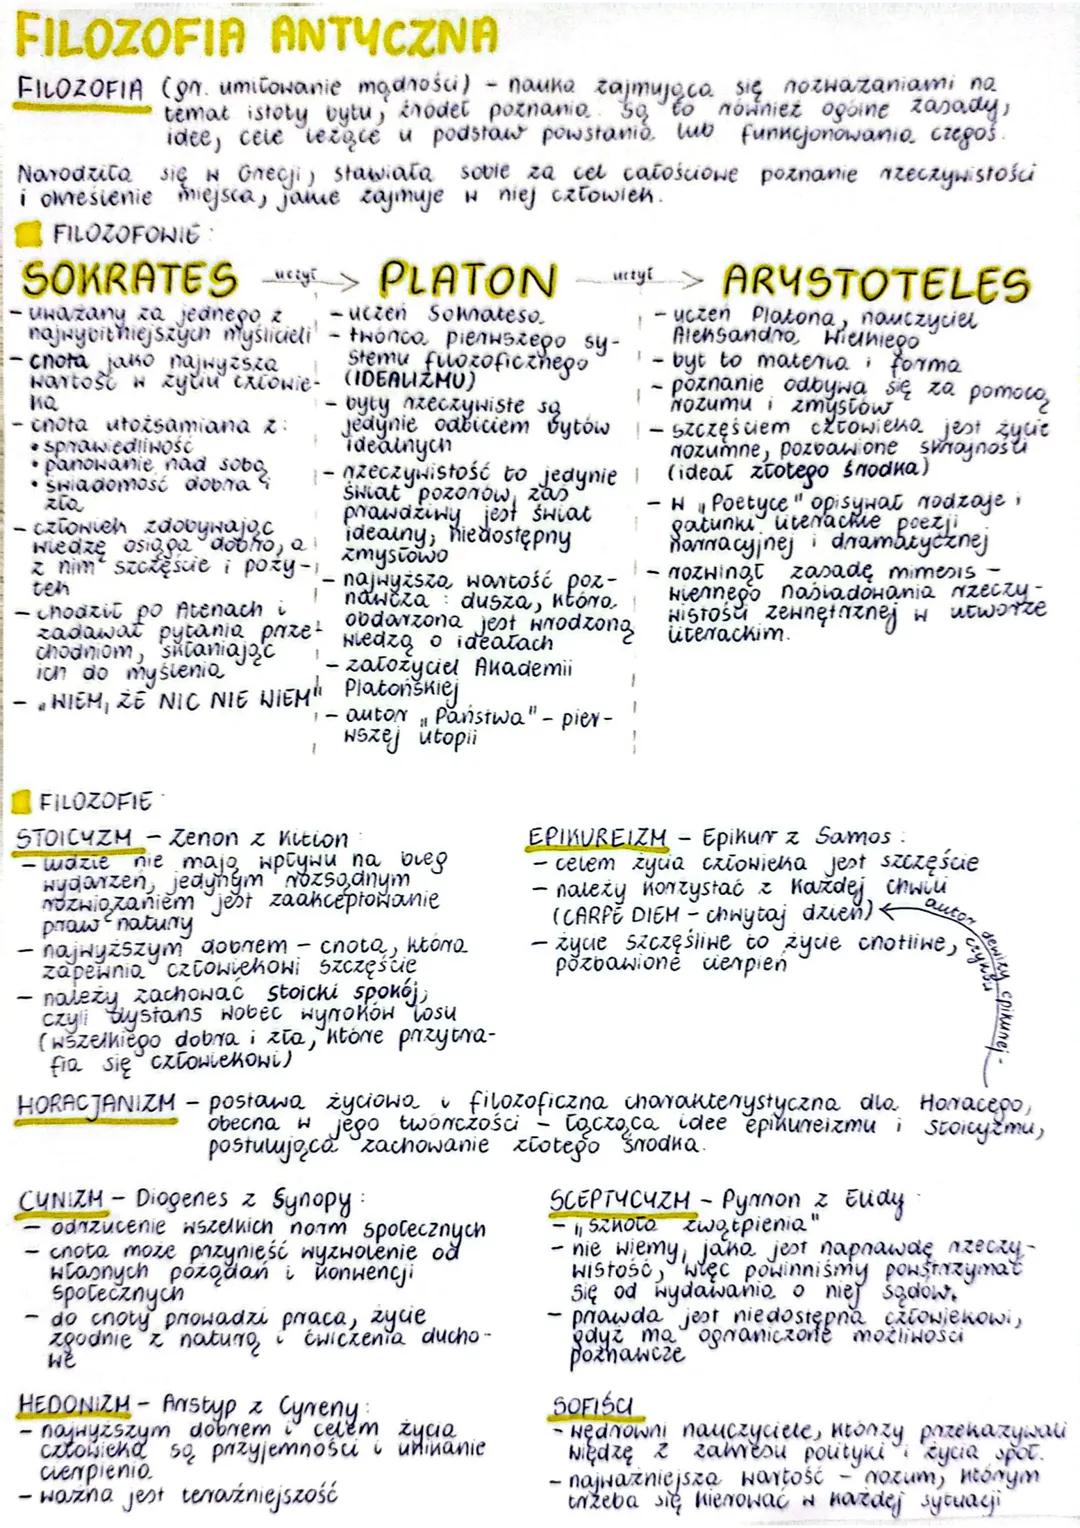 FILOZOFIA ANTYCZNA
FILOZOFIA (gr. umiłowanie mądrości) – nauka zajmująca się rozważaniami na
temat istoty bytu, źródeł poznania. Są to również ogólne zasady,
idee, cele leżące u podstaw powstania lub funkcjonowania czegoś.
Narodziła się w Grecji, stawiała sobie za cel całościowe poznanie rzeczywistości
i określenie miejsca, jakie zajmuje w niej człowiek.
FILOZOFOWIE:
SOKRATES uczył PLATON uczył ARYSTOTELES
– uważany za jednego z
najwybitniejszych myślicieli
– cnota jako najwyższa
wartość w życiu człowie-
ka
– cnota utożsamiana z:
• sprawiedliwość
• panowanie nad sobą
• świadomość dobra i
zła
– człowiek zdobywając
wiedzę osiąga dobro, a
z nim szczęście i poży-
tek
– chodził po Atenach i
zadawał pytania prze-
chodniom, skłaniając
ich do myślenia
– „WIEM, ŻE NIC NIE WIEM"
– uczeń Sokratesa
– twórca pierwszego sy-
stemu filozoficznego
(IDEALIZMU)
– byty rzeczywiste są
jedynie odbiciem bytów
idealnych
– rzeczywistość to jedynie
świat pozorów, zaś
prawdziwy jest świat
idealny, niedostępny
zmysłowo
– najwyższa wartość poz-
nawcza: dusza, która
obdarzona jest wrodzoną
wiedzą o ideałach
– założyciel Akademii
Platońskiej
– autor „Państwa" – pier-
wszej utopii
– uczeń Platona, nauczyciel
Aleksandra Wielkiego
– byt to materia i forma
– poznanie odbywa się za pomocą
rozumu i zmysłów
– szczęściem człowieka jest życie
rozumne, pozbawione skrajności
(ideał złotego środka)
– w „Poetyce" opisywał rodzaje i
gatunki literackie poezji
narracyjnej i dramatycznej
– rozwinął zasadę mimesis –
wiernego naśladowania rzeczy-
wistości zewnętrznej w utworze
literackim.
FILOZOFIE
STOICYZM – Zenon z Kition:
– ludzie nie mają wpływu na bieg
wydarzeń, jedynym rozsądnym
rozwiązaniem jest zaakceptowanie
praw natury
– najwyższym dobrem – cnota, która
zapewnia człowiekowi szczęście
– należy zachować stoicki spokój,
czyli dystans wobec wyroków losu
(wszelkiego dobra i zła, które przytra-
fia się człowiekowi)
EPIKUREIZM – Epikur z Samos:
– celem życia człowieka jest szczęście
– należy korzystać z każdej chwili
(CARPE DIEM – chwytaj dzień)
– życie szczęśliwe to życie cnotliwe,
pozbawione cierpień
autor dewizy epikurej-
czyków
HORACJANIZM – postawa życiowa i filozoficzna charakterystyczna dla Horacego,
obecna w jego twórczości – łącząca idee epikureizmu i stoicyzmu,
postulująca zachowanie złotego środka.
CYNIZM – Diogenes z Synopy:
– odrzucenie wszelkich norm społecznych
– cnota może przynieść wyzwolenie od
własnych pożądań i konwencji
społecznych
– do cnoty prowadzi praca, życie
zgodnie z naturą i ćwiczenia ducho-
we
SCEPTYCYZM – Pyrron z Elidy
– „szkoła zwątpienia"
– nie wiemy, jaka jest naprawdę rzeczy-
wistość, więc powinniśmy powstrzymać
się od wydawania o niej sądów.
– prawda jest niedostępna człowiekowi,
gdyż ma ograniczone możliwości
poznawcze
HEDONIZM – Arystyp z Cyreny:
– najwyższym dobrem i celem życia
człowieka są przyjemności i unikanie
cierpienia
– ważna jest teraźniejszość
SOFIŚCI
– wędrowni nauczyciele, którzy przekazywali
wiedzę z zakresu polityki i życia społ.
– najważniejsza wartość – rozum, którym
trzeba się kierować w każdej sytuacji